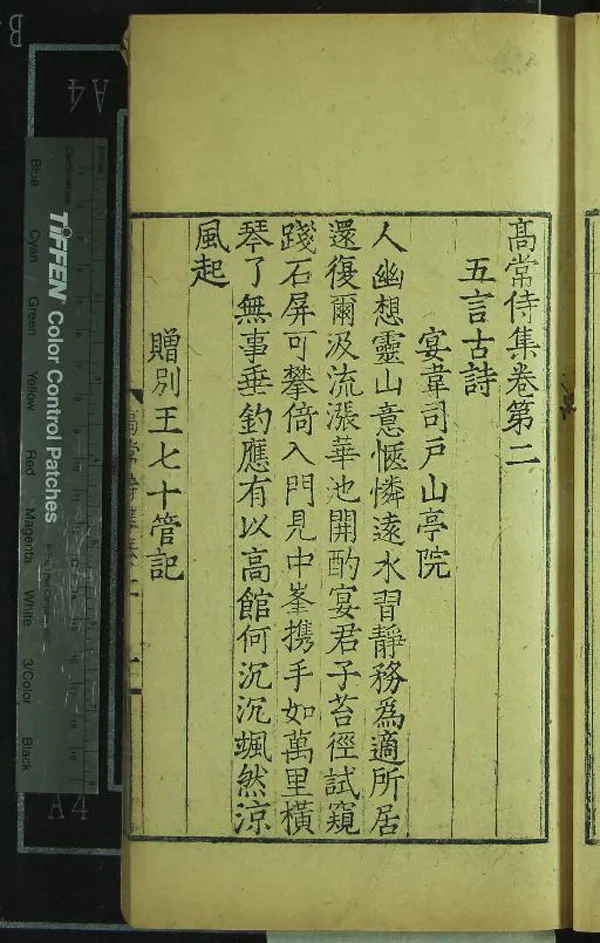 高常侍集卷第二
五言古詩
宴韋司戸山亭院
人幽想靈山意愜憐遠水習靜務為適所居
還復爾汲流漲華池開酌宴君子苔徑試窺
踐石屏可攀倚入門見中峯携手如萬里橫
琴了無事垂釣應有以高館何沉沉颯然涼
風起
贈別王七十管記
TIFFEN Color Control Patches
Centimetres
Blue
Cyan
Green
Yellow
Red
Magenta
White
3/Color
Black
A4
A4
B